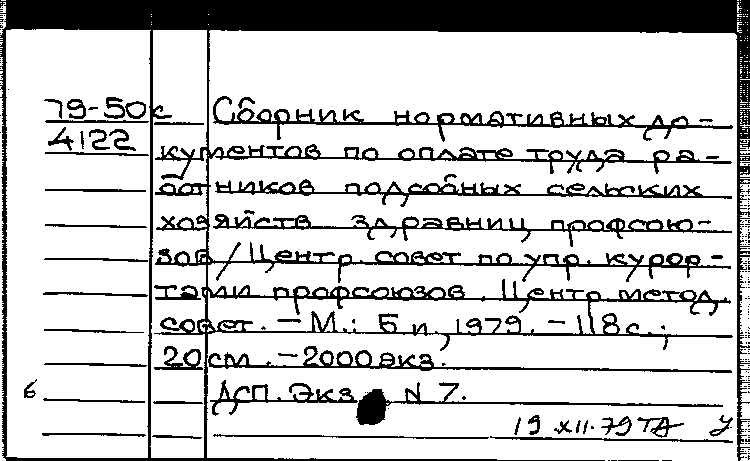 79-50с Сборник нормативных до-
4122 кументов по оплате труда ра-
ботников подсобных сельских
хозяйств здравниц профсою-
зов / Центр. совет по упр. курор-
тами профсоюзов. Центр. метод.
совет. – М.: Б и, 1979. – 118 с.;
20 см. – 2000 экз.
6 ДСП. Экз. N 7.
19.XII.79